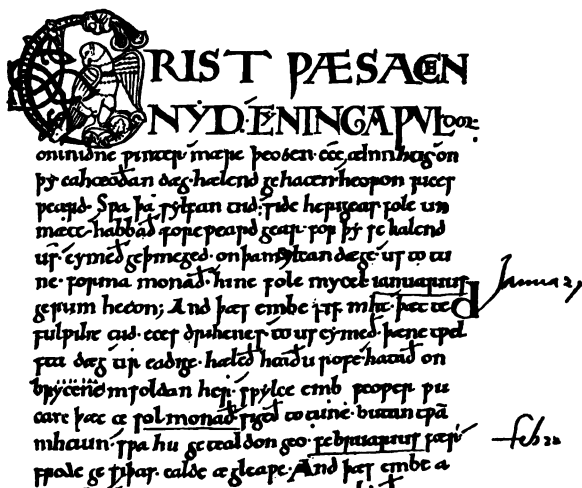 CRIST ǷÆS ACEN
NẎD. CẎNINGA ǷULdor.
on midne ƿinter. mære þeoden. éce ælmihtig. on
þẏ eahteoðan dæg. hælend gehaten. heofon rices
ƿeard. Sƿa þa sylfan tiid. side herigeas folc un
mæte. habbað foreƿeard gear. for þẏ se kalend
us. cẏmeð geþincged. on þam ẏlcan dæge. us to tu
ne. forma monað. hine folc mycel. ianuarius
gerum heton; And þæs embe fif niht. þætte
fulƿiht tiid. eces drihtnes. to us cẏmeð. þæne tƿel
fta dæg tir eadige. hæleð heaðu rofe. hatað on
brẏtene in foldan her. sƿẏlce emb feoƿer ƿu
can þætte solmonað. sigeð to tune. butan tƿā
nihtum. sƿa hit getealdon geo. februarius fær.
frode gesiþas. ealde ægleaƿe. And þæs embe a
January
feb